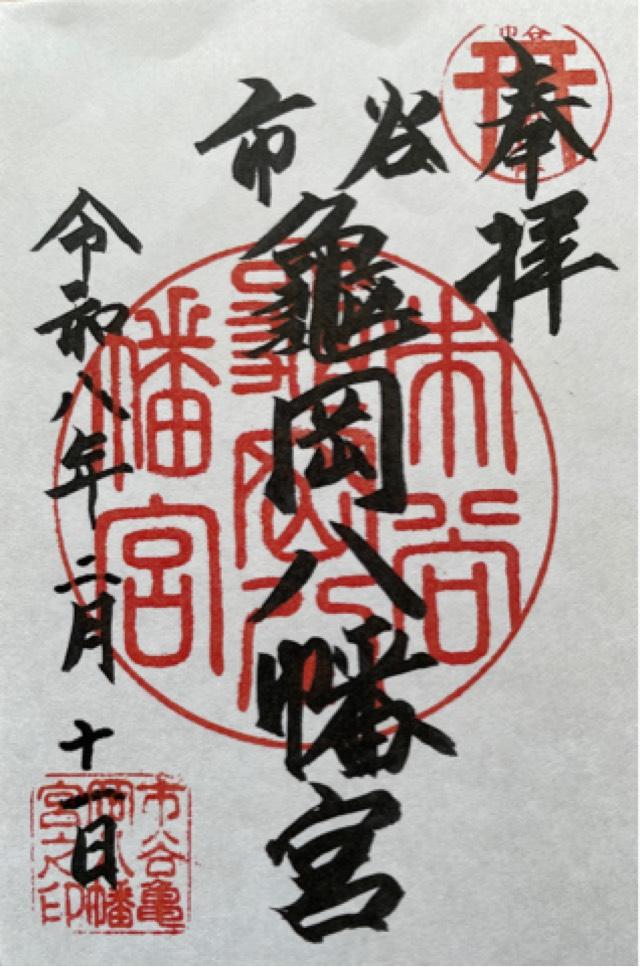 奉拝
市谷
龜岡八幡宮
令和八年二月十一日
市谷
市谷
龜岡八
幡宮
市谷亀
岡八幡
宮之印